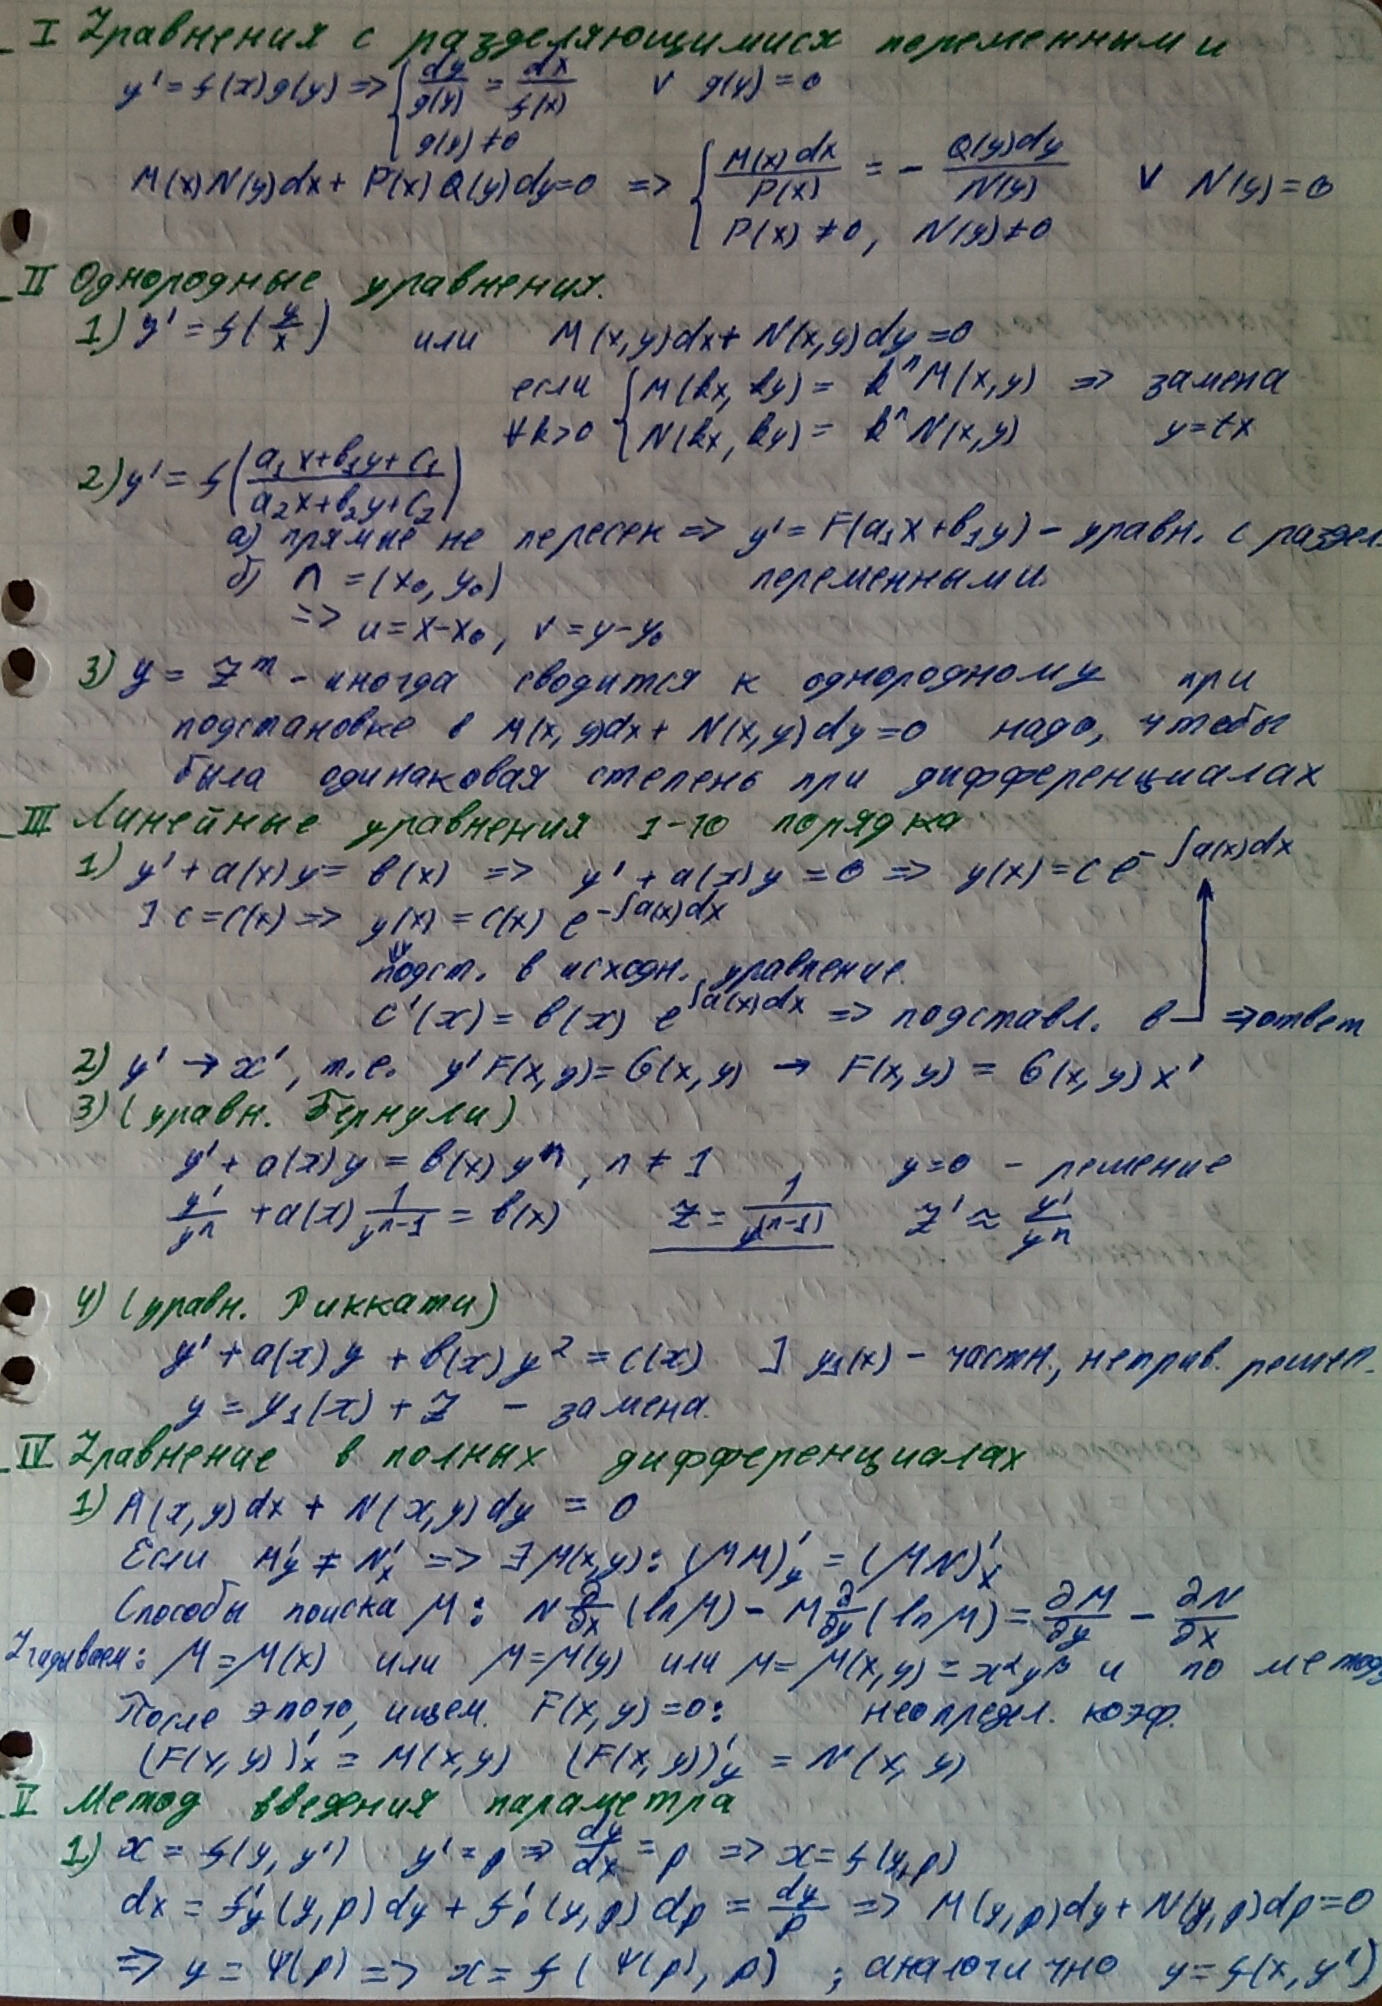 I Уравнения с разделяющимися переменными
y' = f(x)g(y) => { dy/g(y) = dx/f(x) ∨ g(y) = 0
g(y) ≠ 0
M(x)N(y)dx + P(x)Q(y)dy = 0 => { M(x)dx/P(x) = - Q(y)dy/N(y) ∨ N(y) = 0
P(x) ≠ 0, N(y) ≠ 0
II Однородные уравнения.
1) y' = f(y/x) или M(x,y)dx + N(x,y)dy = 0
если { M(kx, ky) = kⁿM(x,y) => замена
∀k>0 { N(kx, ky) = kⁿN(x,y) y=tx
2) y' = f((a₁x+b₁y+c₁)/(a₂x+b₂y+c₂))
а) прямые не пересек => y' = F(a₁x+b₁y) - уравн. с раздел.
переменными.
б) ∩ = (x₀, y₀)
=> u = x-x₀, v = y-y₀
3) y = zᵐ - иногда сводится к однородному при
подстановке в M(x,y)dx + N(x,y)dy = 0 надо, чтобы
была одинаковая степень при дифференциалах
III Линейные уравнения 1-го порядка
1) y' + a(x)y = b(x) => y' + a(x)y = 0 => y(x) = c e^(-∫a(x)dx)
] c = c(x) => y(x) = c(x) e^(-∫a(x)dx)
⇓
подст. в исходн. уравнение.
c'(x) = b(x) e^(∫a(x)dx) => подставл. в => ответ
2) y' → x', т.е. y'F(x,y) = G(x,y) → F(x,y) = G(x,y)x'
3) (уравн. Бернули)
y' + a(x)y = b(x)yⁿ, n ≠ 1 y=0 - решение
y'/yⁿ + a(x) 1/yⁿ⁻¹ = b(x) z = 1/y⁽ⁿ⁻¹⁾ z' ≈ y'/yⁿ
4) (уравн. Риккати)
y' + a(x)y + b(x)y² = c(x) ] y₁(x) - частн., неприв. решен.
y = y₁(x) + z - замена.
IV Уравнение в полных дифференциалах
1) M(x,y)dx + N(x,y)dy = 0
Если M'y ≠ N'x => ∃ μ(x,y): (μM)'y = (μN)'x
Способы поиска μ: N ∂/∂x (ln μ) - M ∂/∂y (ln μ) = ∂M/∂y - ∂N/∂x
Угадываем: μ = μ(x) или μ = μ(y) или μ = μ(x,y) = x^α y^β и по метод
неопредел. коэф.
После этого, ищем F(x,y)=0:
(F(x,y))'x = M(x,y) (F(x,y))'y = N(x,y)
V Метод введения параметра
1) x = f(y, y') y' = p => dy/dx = p => x = f(y,p)
dx = f'y(y,p)dy + f'p(y,p)dp = dy/p => M(y,p)dy + N(y,p)dp = 0
=> y = Ψ(p) => x = f(Ψ(p), p) ; аналогично y = f(x, y')